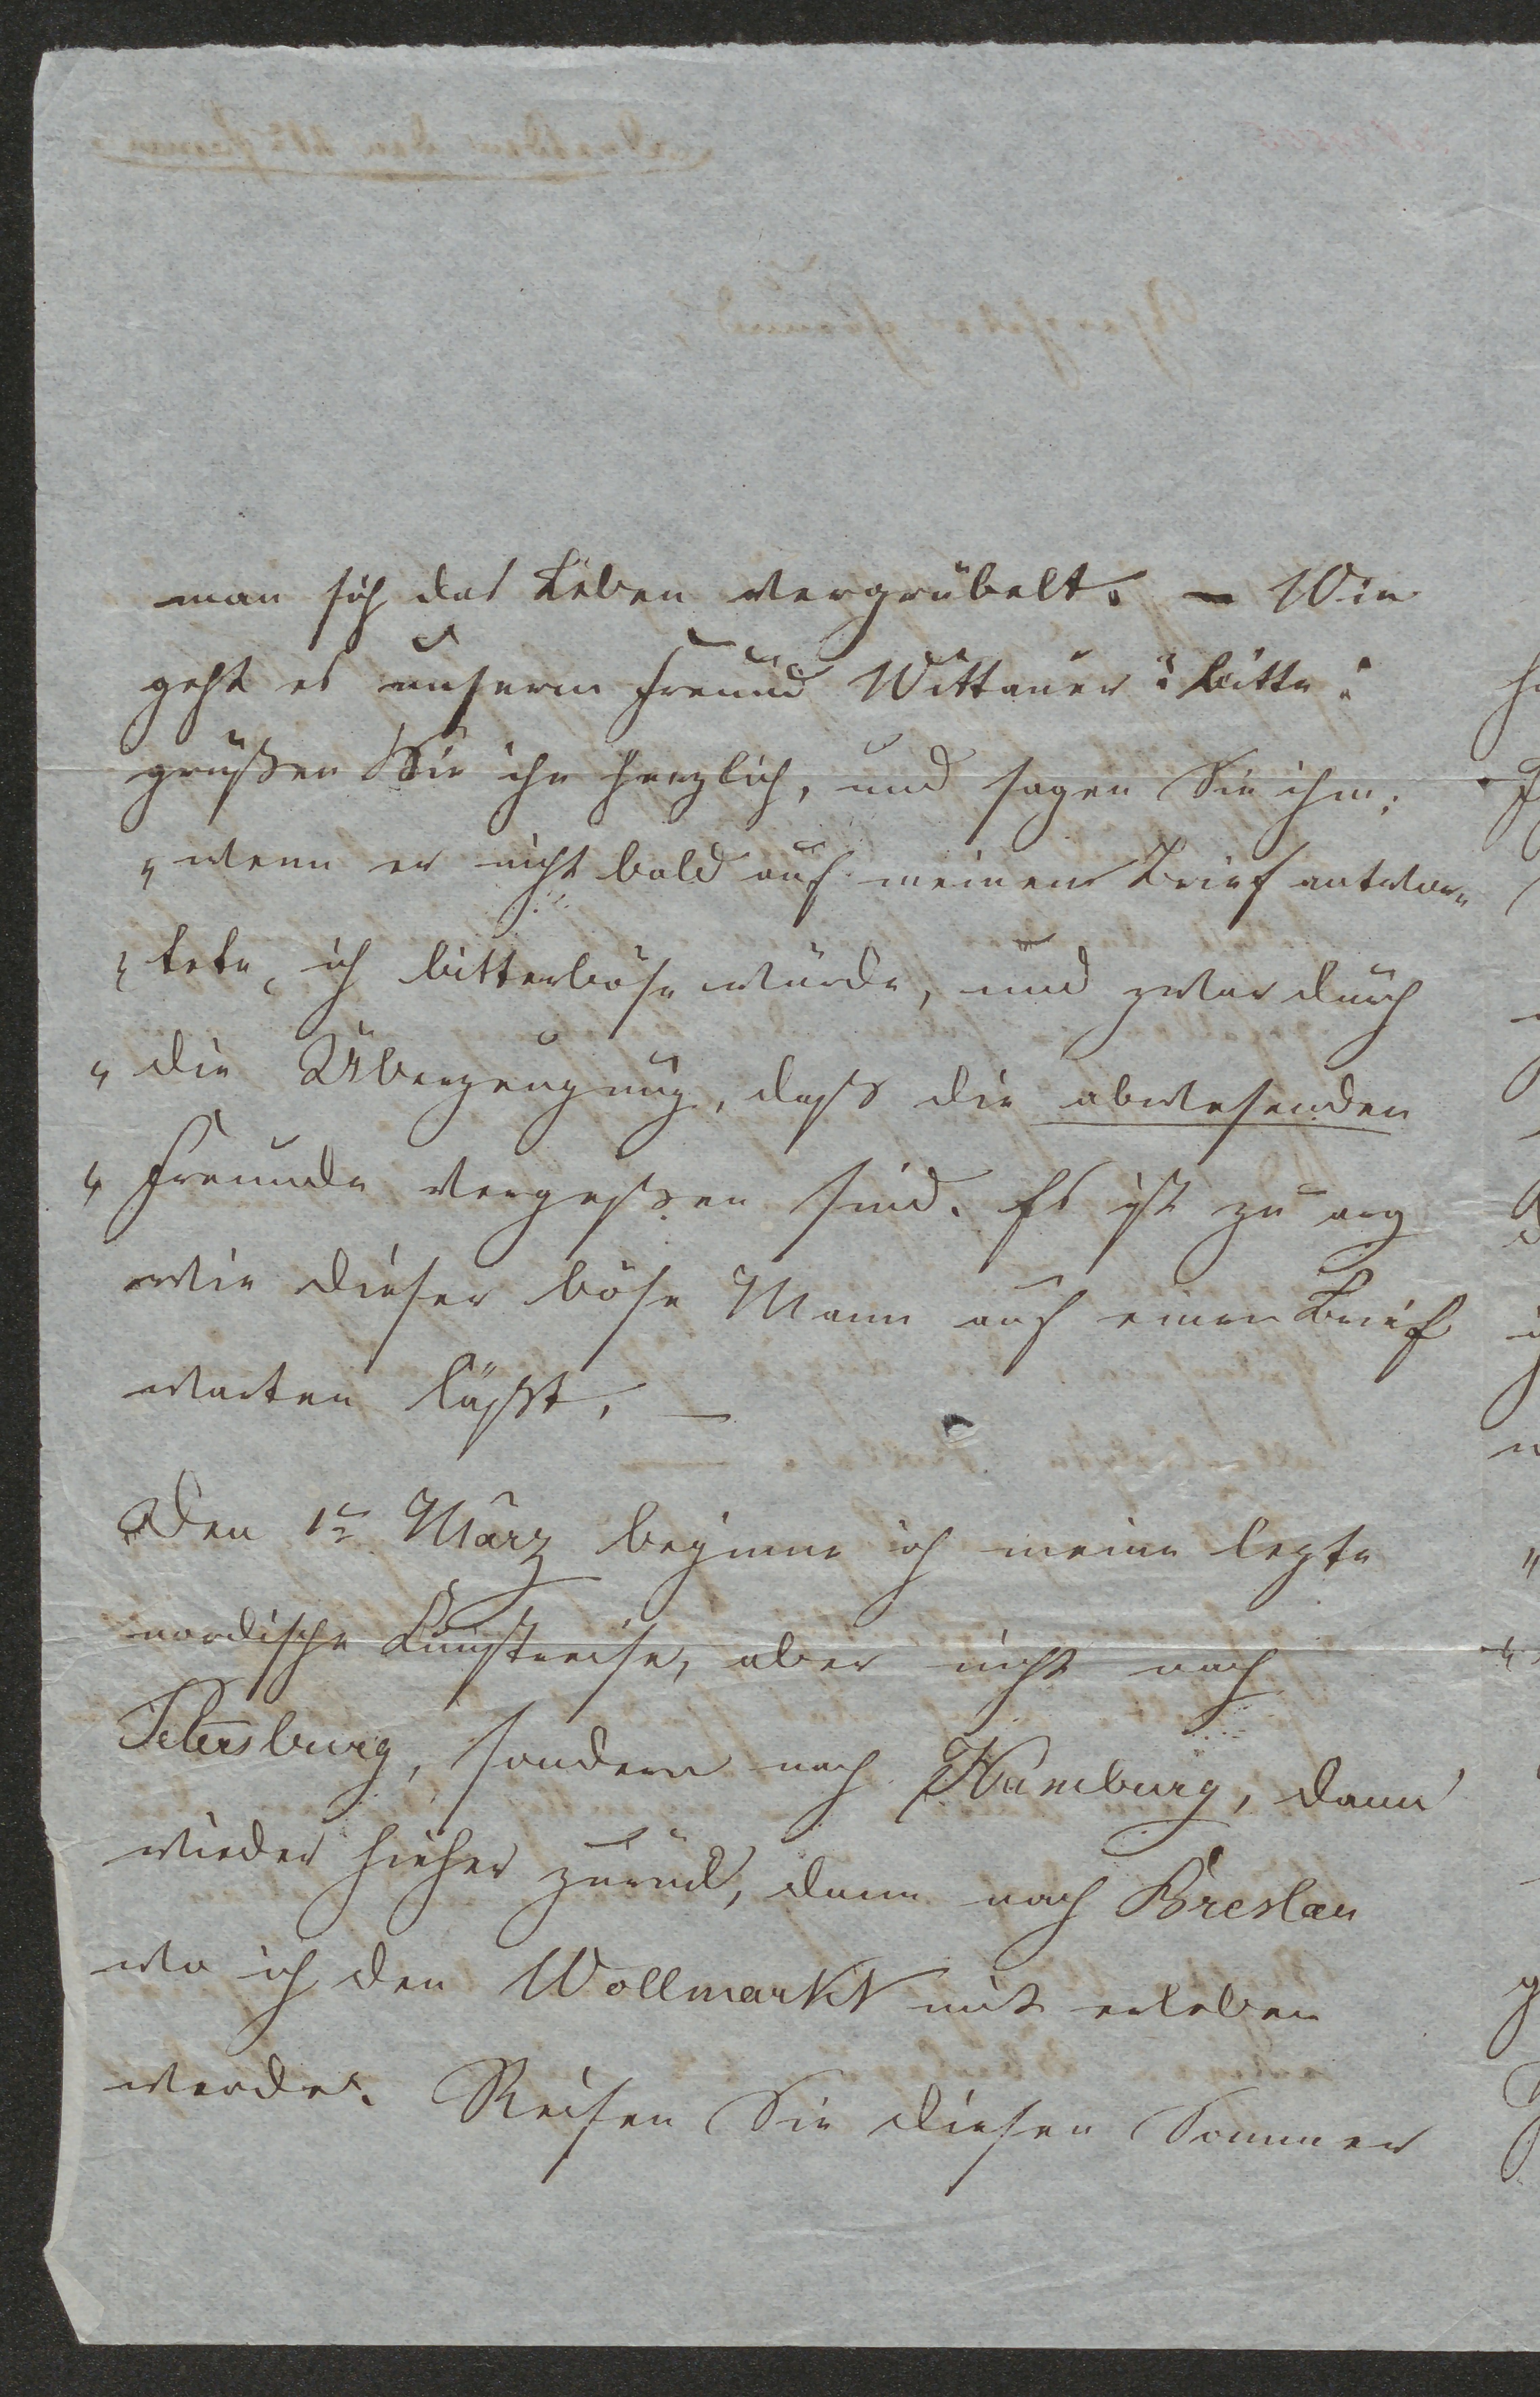 man sich das Leben vergrübelt. – Wie
geht es unserm Freund Wittauer? Bitte!
grüßen Sie ihn herzlich, und sagen Sie ihm;
„wenn er nicht bald auf meinen Brief antwor„
„tete, ich bitterböse würde, und zwar durch
„die Überzeugung, daß die abwesenden
„Freunde vergeßen sind. Es ist zu arg
wie dieser böse Mann auf einen Brief
warten läßt. –
Den 1ten März beginne ich meine lezte
nordische Kunstreise, aber nicht nach
Petersburg, sondern nach Hamburg, dann
wieder hieher zurück, dann nach Breslau
wo ich den Wollmarkt mit erleben
werde. Reisen Sie diesen Sommer